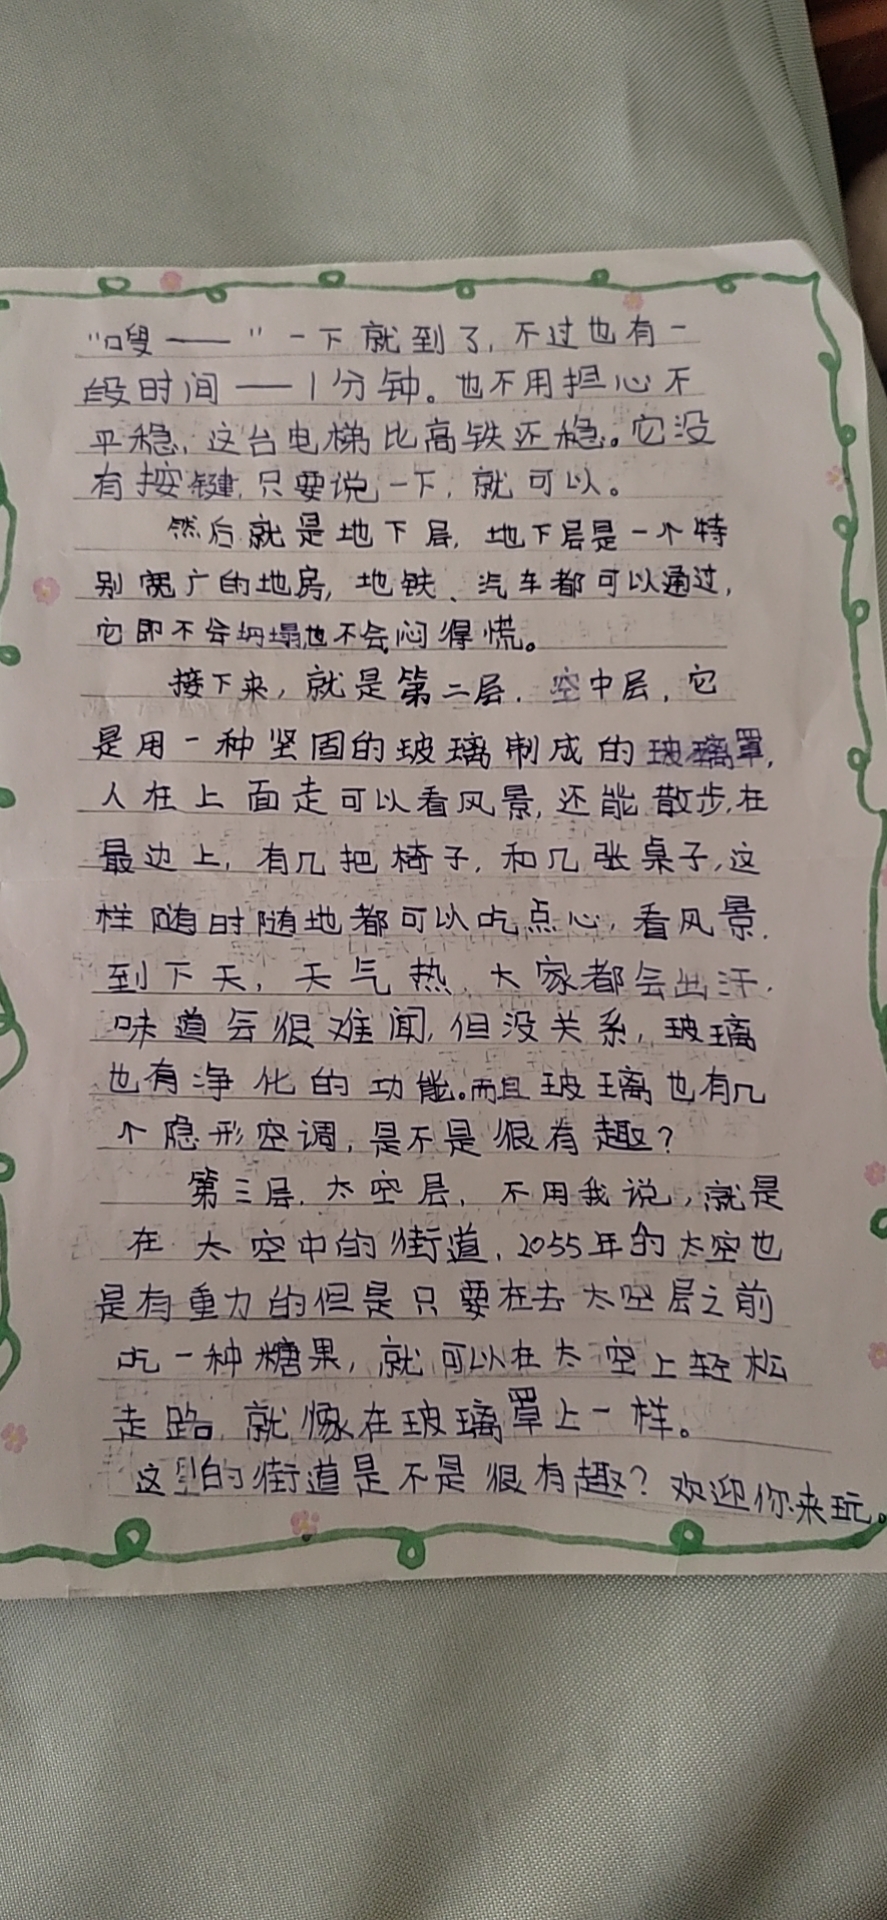 “嗖——”一下就到了，不过也有一
段时间——1分钟。也不用担心不
平稳，这台电梯比高铁还稳。它没
有按键，只要说一下，就可以。
然后就是地下层，地下层是一个特
别宽广的地房，地铁、汽车都可以通过，
它即不会坍塌也不会闷得慌。
接下来，就是第二层，空中层，它
是用一种坚固的玻璃制成的玻璃罩，
人在上面走可以看风景，还能散步，在
最边上，有几把椅子，和几张桌子，这
样随时随地都可以吃点心，看风景，
到下天，天气热，大家都会出汗，
味道会很难闻，但没关系，玻璃
也有净化的功能。而且玻璃也有几
个隐形空调，是不是很有趣？
第三层，太空层，不用我说，就是
在太空中的街道，2055年的太空也
是有重力的但是只要在去太空层之前
吃一种糖果，就可以在太空上轻松
走路，就像在玻璃罩上一样。
这里的街道是不是很有趣？欢迎你来玩。